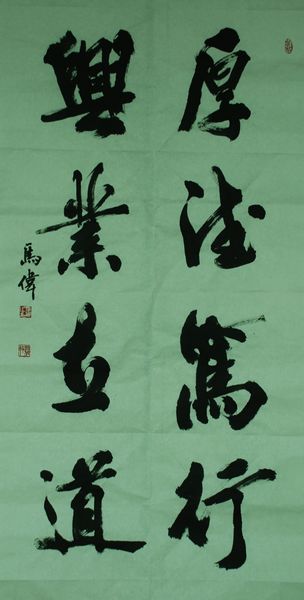 厚德篤行
興業道
馬偉